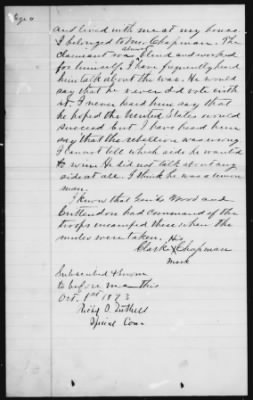 and lived with me at my house.
I belonged to Mr. Chapman. The
claimant was almost blind and worked
for himself. I have frequently heard
him talk about the war. He would
say that he never did vote with
it. I never heard him say that
he hoped the United States would
succeed but I have heard him
say that the rebellion was wrong
I cannot tell which side he wanted
to win. He did not talk about any
side at all. I think he was a Union
man.
I know that Gen'ls Wood and
Crittendon had command of the
troops encamped there when the
mules were taken.
His
Clark X Chapman
Mark
Subscribed & sworn
to before me this
Oct. 1st 1873
Special Com.